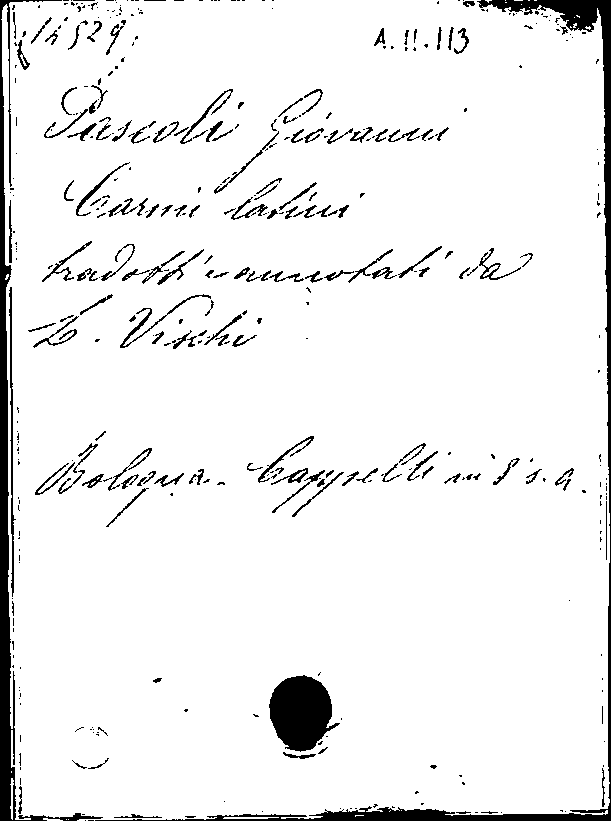 14529
A.II.113
Pascoli Giovanni
Carmi latini
tradotti e annotati da
L. Vischi
Bologna - Cappelli in 8° s.a.